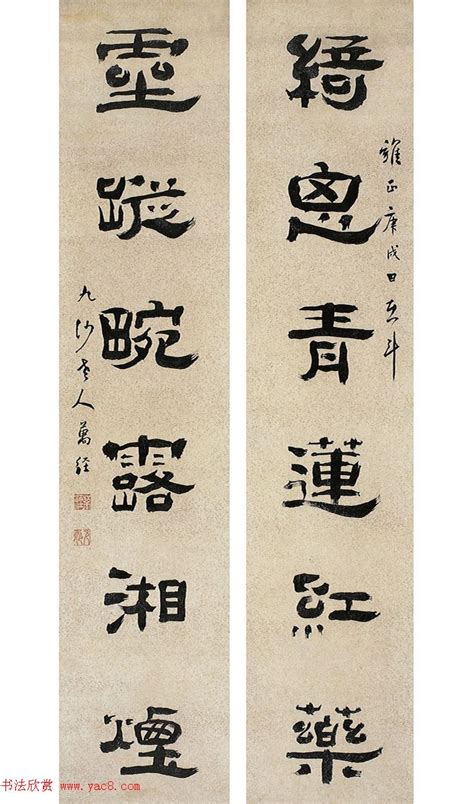 雍正庚戌日在斗
綺思青蓮紅藥
靈蹤畹露湘煙
九沙老人萬經
书法欣赏 www.yac8.com